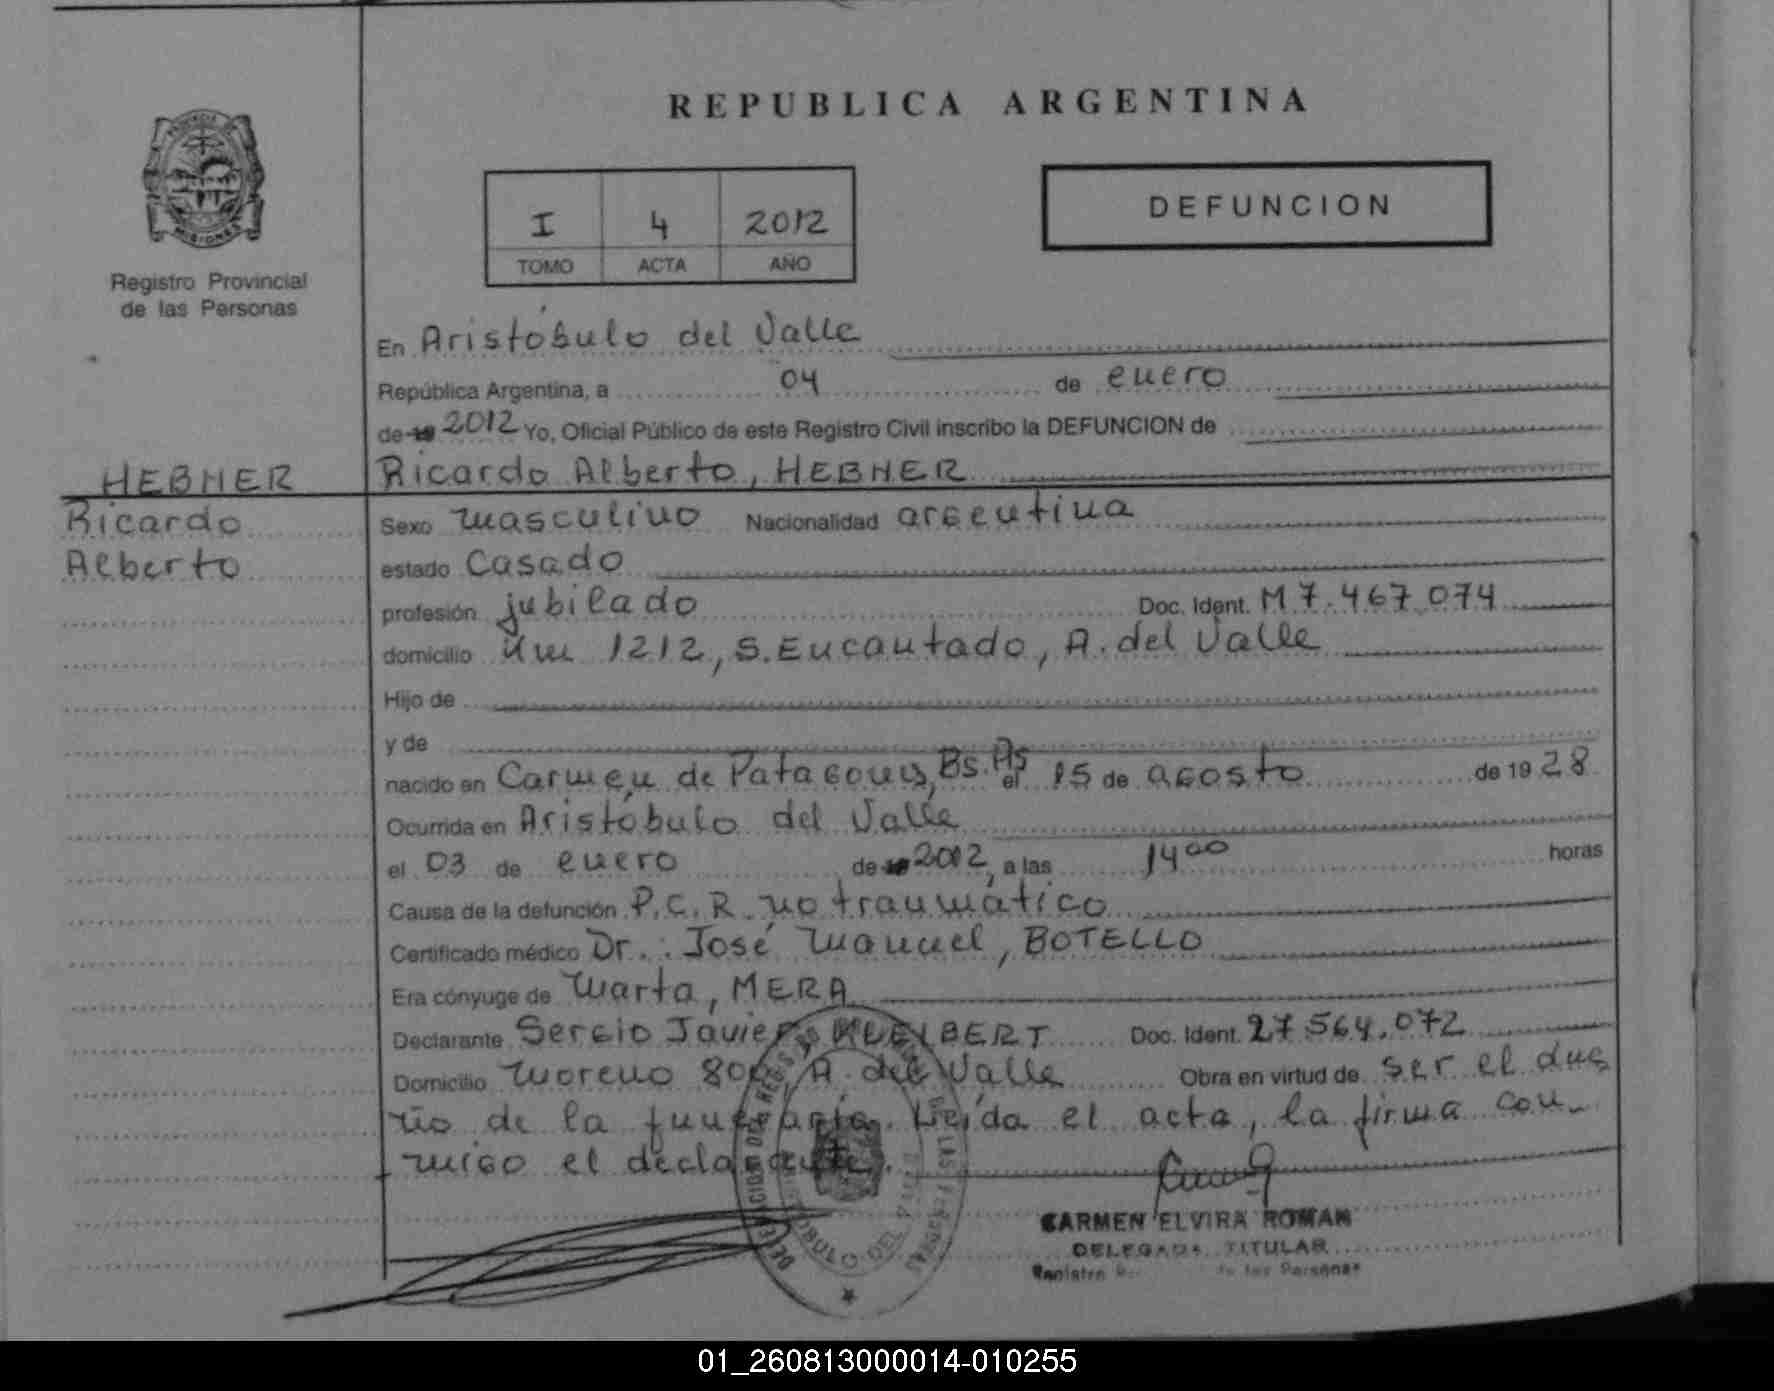 REPUBLICA ARGENTINA
PROVINCIA DE
MISIONES
Registro Provincial
de las Personas
I 4 2012
TOMO ACTA AÑO
DEFUNCION
En Aristóbulo del Valle
República Argentina, a 04 de enero
de 19 2012 Yo, Oficial Público de este Registro Civil inscribo la DEFUNCION de
HEBNER
Ricardo Alberto, HEBNER
Ricardo
Alberto
Sexo masculino Nacionalidad argentina
estado Casado
profesión jubilado Doc. Ident. M 7.467.074
domicilio Km 1212, S. Encantado, A. del Valle
Hijo de
y de
nacido en Carmen de Patagones, Bs. As el 15 de agosto de 1928
Ocurrida en Aristóbulo del Valle
el 03 de enero de 19 2012, a las 14 00 horas
Causa de la defunción P.C.R. no traumático
Certificado médico Dr.: José Manuel, BOTELLO
Era cónyuge de Marta, MERA
Declarante Sergio Javier Doc. Ident. 27.564.072
Domicilio Moreno A. del Valle Obra en virtud de ser el due
ño de la funeraria. Leída el acta, la firma con-
migo el declarante.
CARMEN ELVIRA ROMAN
DELEGADA TITULAR
Registro de las Personas
01_260813000014-010255